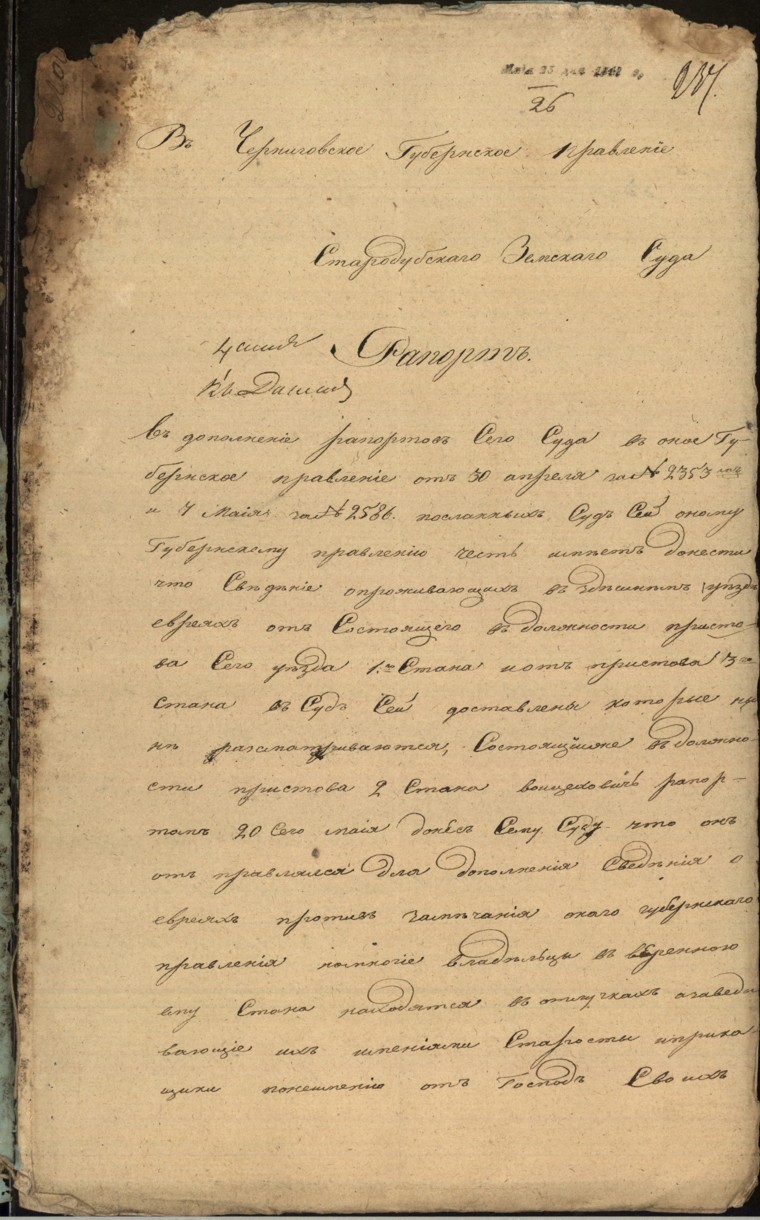 Мая 25 дня 1841 г.
237.
26
Въ Черниговское Губернское Правленіе
Стародубскаго Земскаго Суда
Рапортъ.
Къ
Въ дополненіе рапортовъ Сего Суда въ оное Гу-
бернское правленіе отъ 30 апреля за № 2353
и 7 Маія за № 2586. посланныхъ Судъ Сей оному
Губернскому правленію честь имѣетъ донести
что Свѣдѣніе опроживающихъ въ здѣшнемъ уѣзде
евреяхъ отъ Состоящего въ должности присто-
ва Сего уѣзда 1. Стана иотъ пристова 3
стана въ Судъ Сей доставлены которые ны
нѣ разсматриваются, Состоящійже въ должно-
сти пристова 2 Стана воицеховичъ рапор-
томъ 20 Сего маія донёсъ Сему Суду что онъ
отъ правлялся для дополненія Сведѣнія о
евреяхъ противъ замѣчанія онаго губернскаго
правленія номногіе владѣльцы въ вѣренного
ему Стана находятся въ отлучкахъ азаведы
вающіе ихъ имѣніями Старосты иприка
щики понеимѣнію отъ Господъ Своихъ